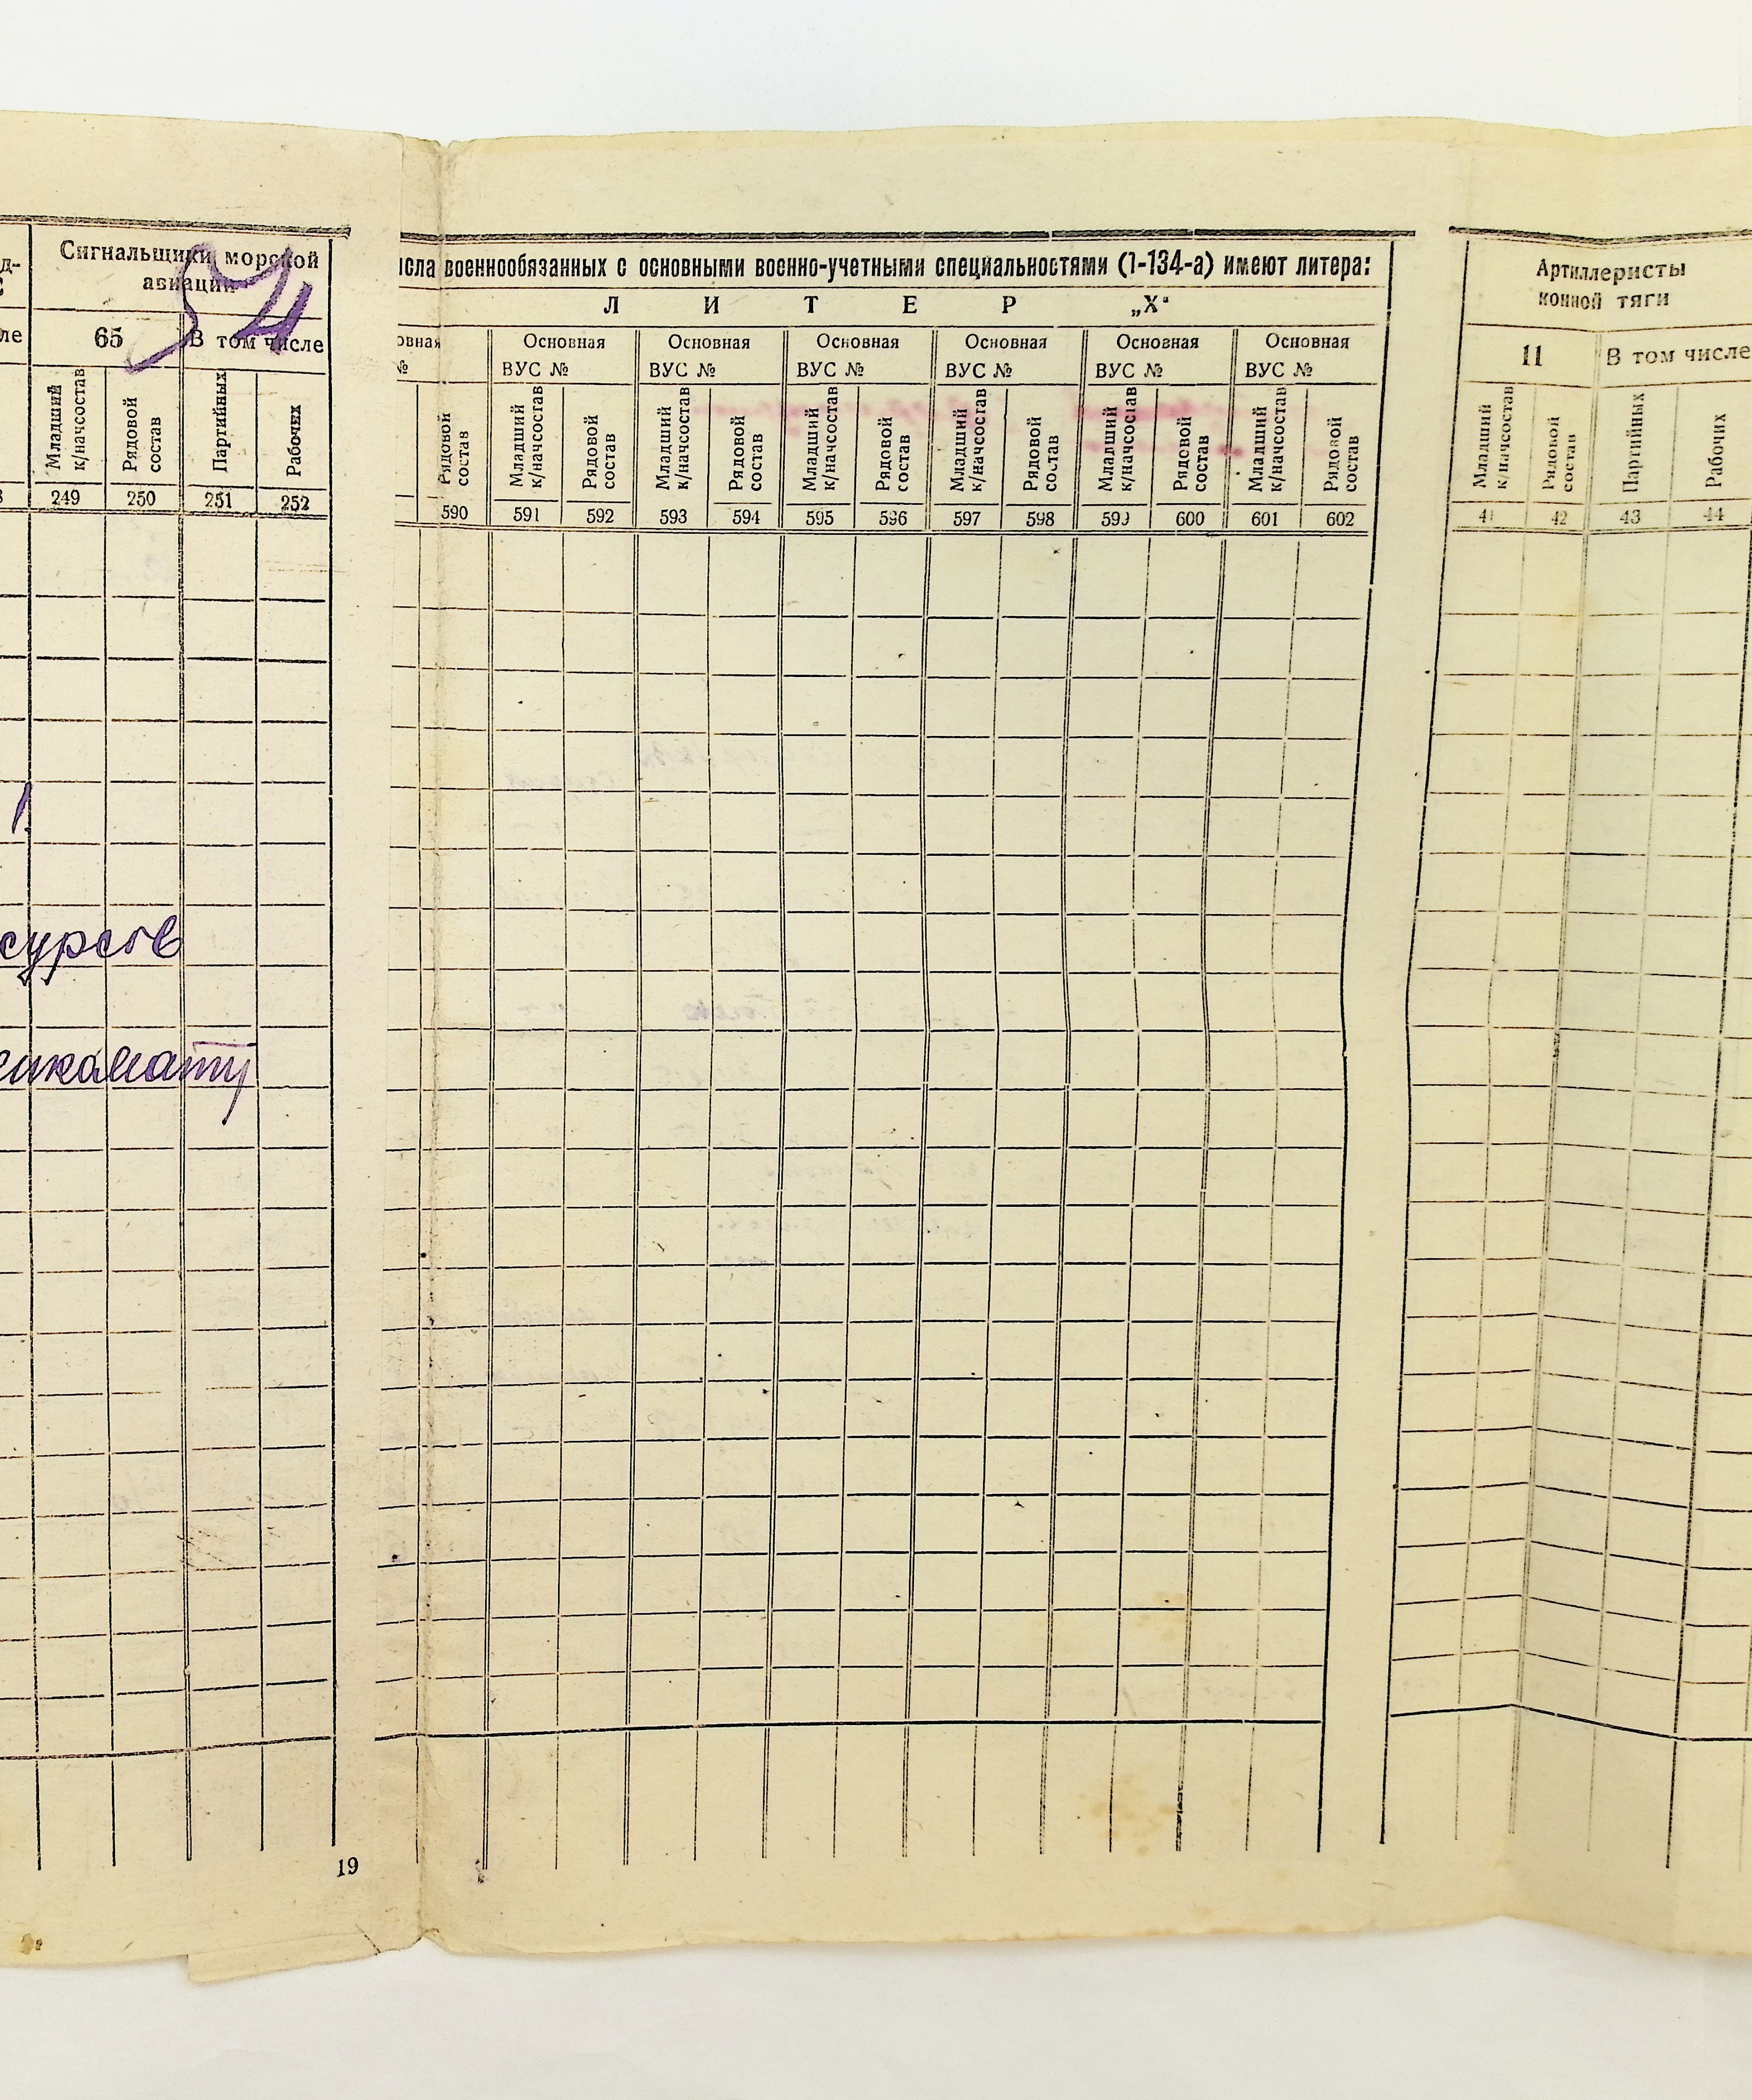 Сигнальщики морской
авиации
54
65 В том числе
Младший к/начсостав
Рядовой состав
Партийных
Рабочих
249 250 251 252
сурсов
19
военнообязанных с основными военно-учетными специальностями (1-134-а) имеют литера:
ЛИТЕР „Х“
Основная Основная Основная Основная Основная Основная
№ ВУС № ВУС № ВУС № ВУС № ВУС № ВУС №
Рядовой состав
Младший к/начсостав
Рядовой состав
Младший к/начсостав
Рядовой состав
Младший к/начсостав
Рядовой состав
Младший к/начсостав
Рядовой состав
Младший к/начсостав
Рядовой состав
Младший к/начсостав
Рядовой состав
590 591 592 593 594 595 596 597 598 599 600 601 602
Артиллеристы
конной тяги
11 В том числе
Младший к/начсостав
Рядовой состав
Партийных
Рабочих
41 42 43 44